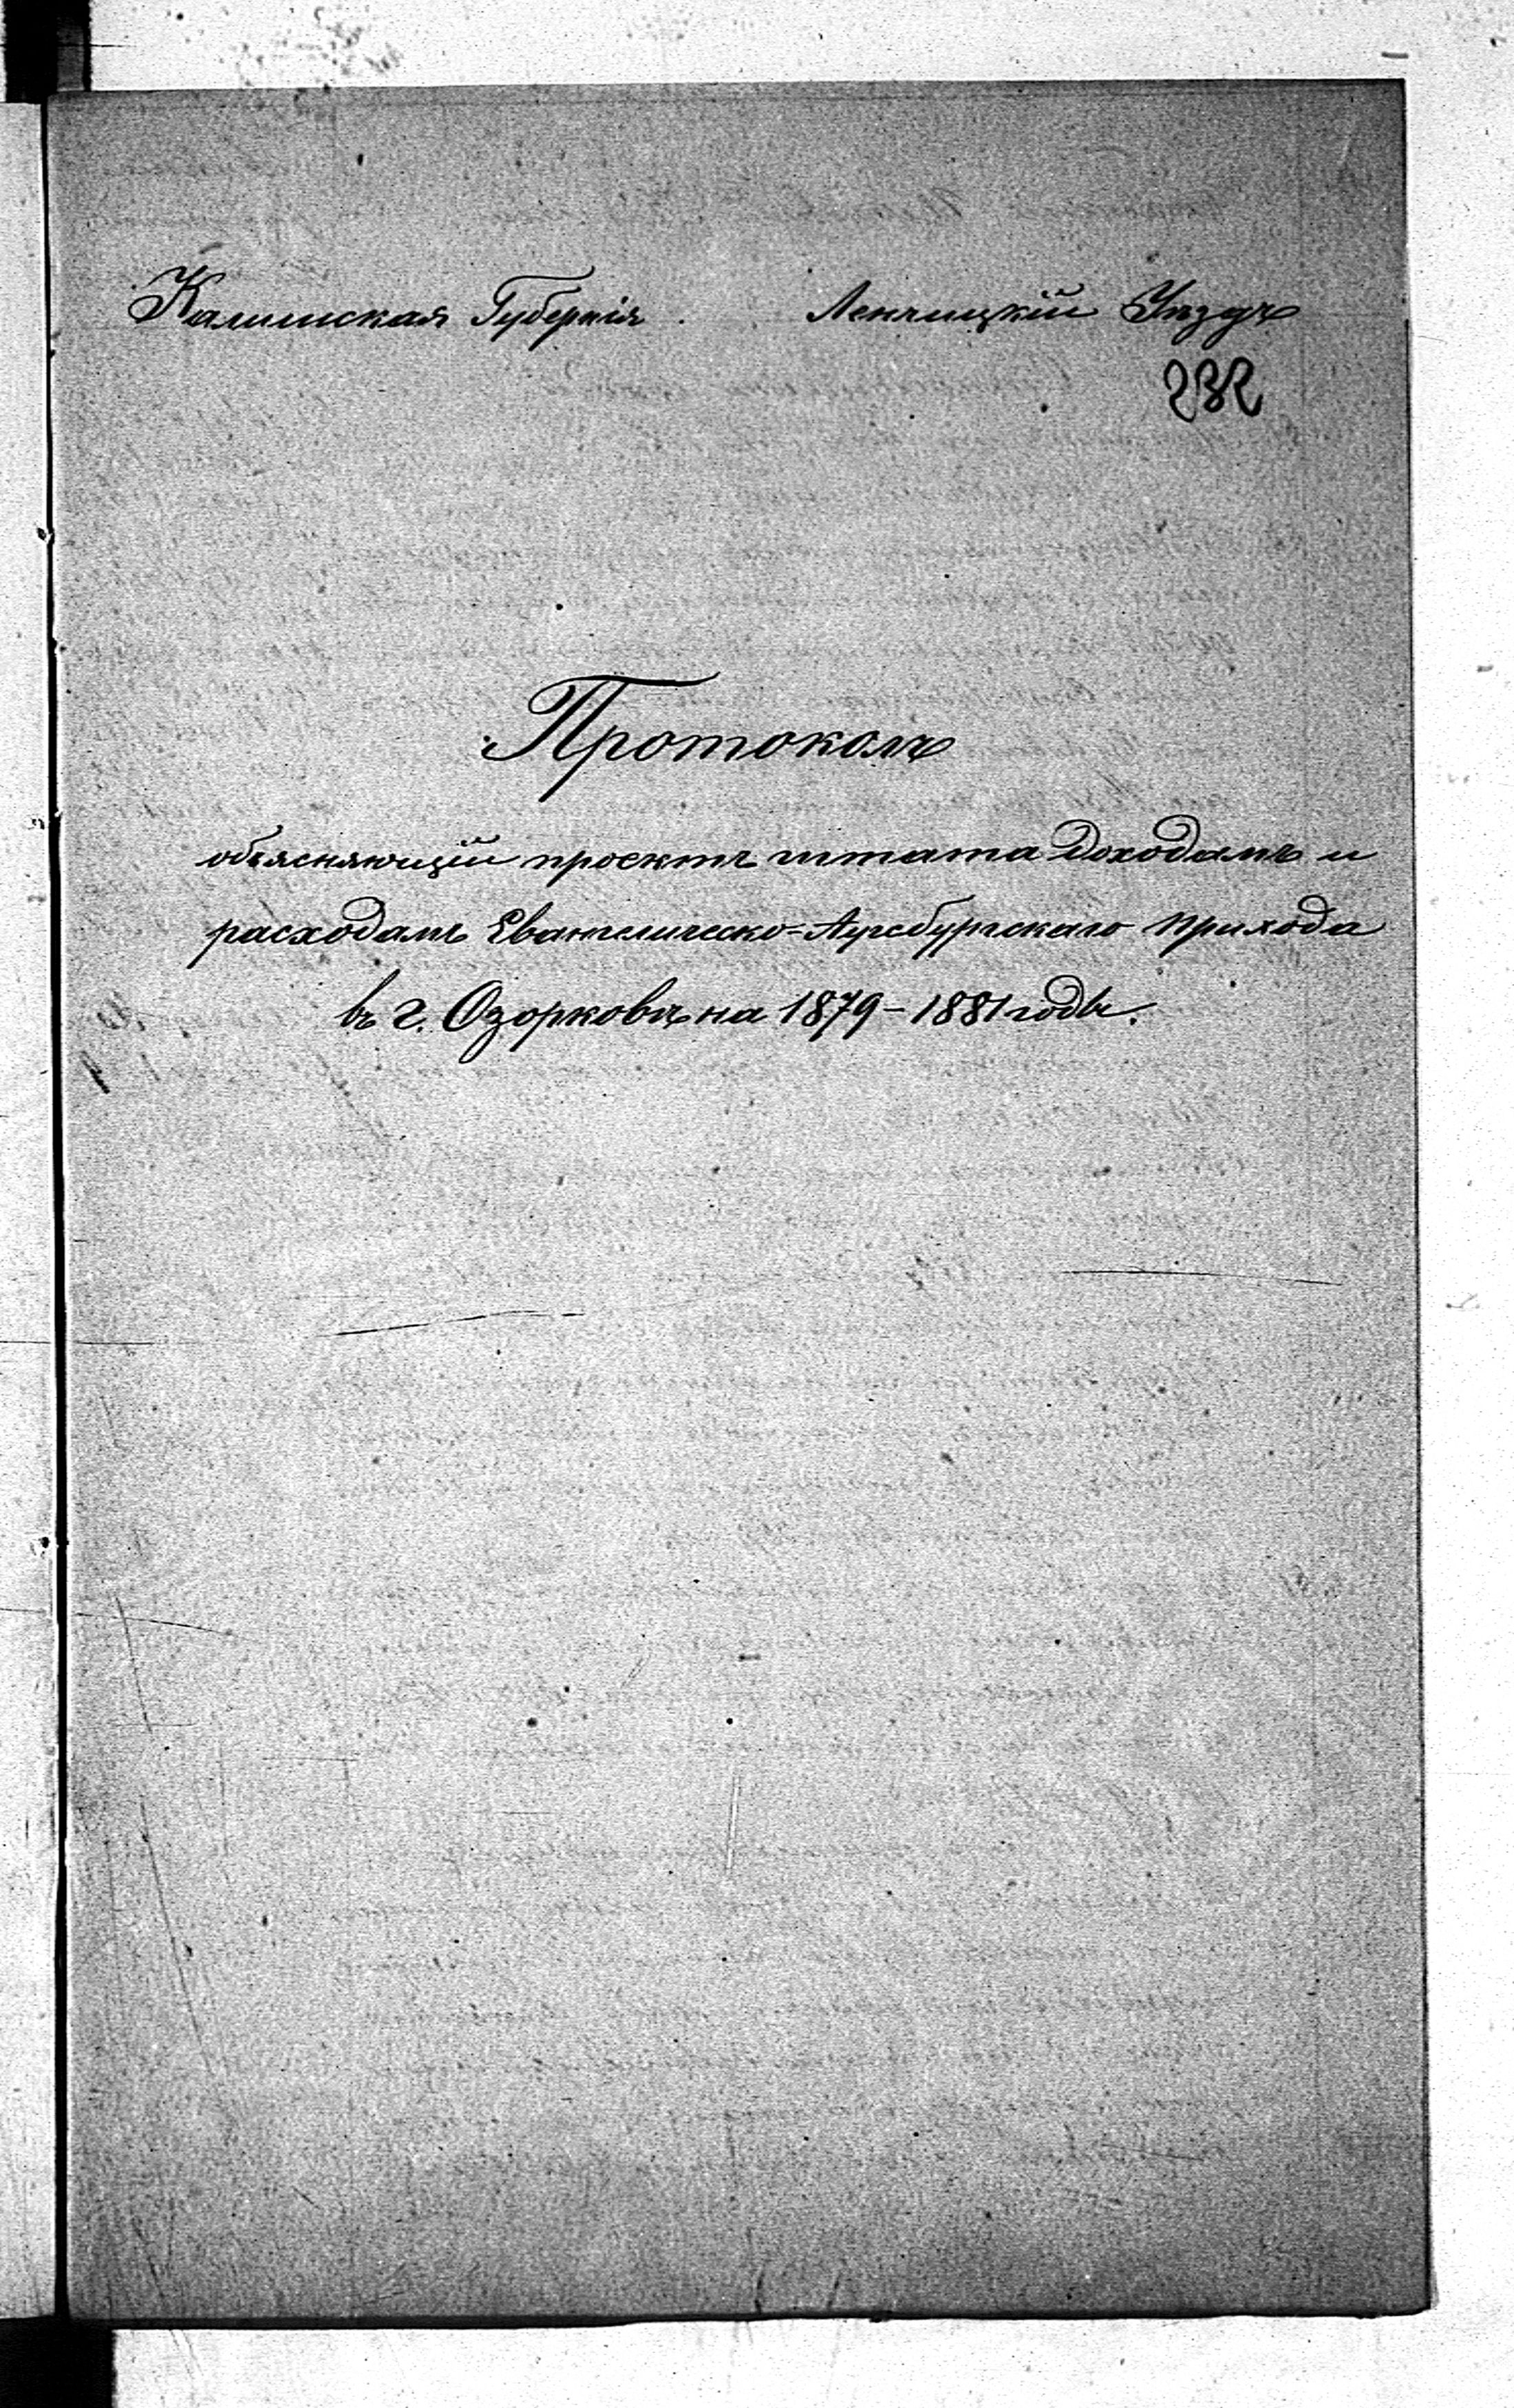 Калишская Губернія Ленчицкій Уѣздъ
232
Протоколъ
объясняющій проектъ штата доходамъ и
расходамъ Евангелическо-Аугсбургскаго прихода
въ г. Озорковѣ на 1879-1881 годы.